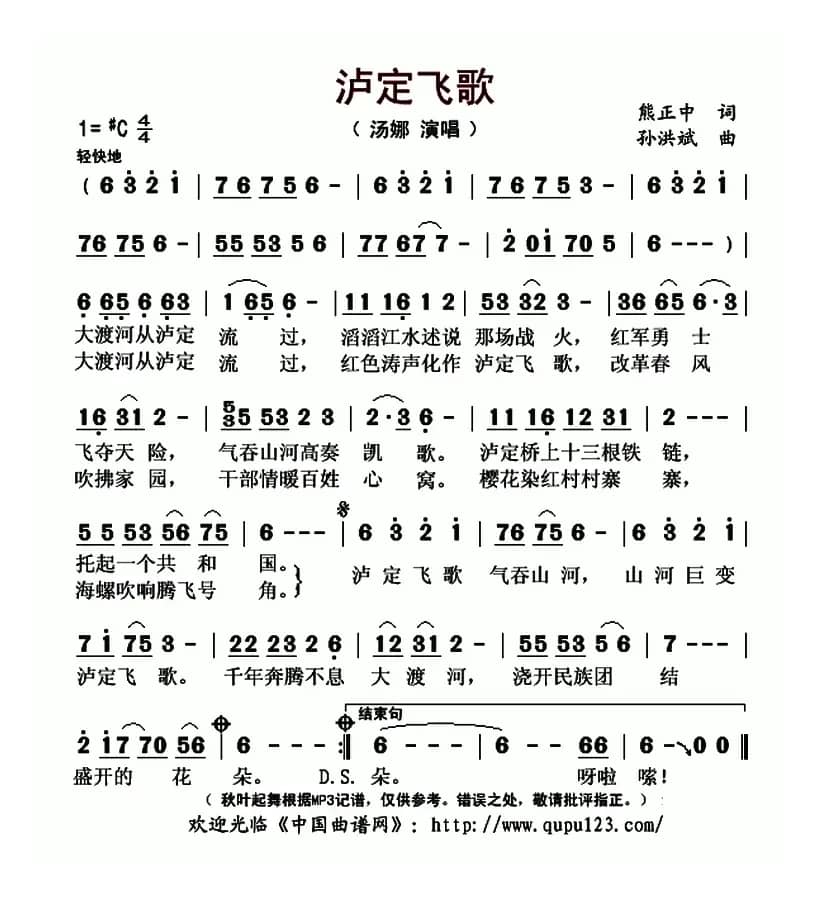 泸定飞歌
1= #C 4/4
（ 汤娜 演唱 ）
熊正中 词
孙洪斌 曲
轻快地
( 6 3 2 1 | 7 6 7 5 6 - | 6 3 2 1 | 7 6 7 5 3 - | 6 3 2 1 |
76 75 6 - | 55 53 5 6 | 77 67 7 - | 2 01 70 5 | 6 - - - ) |
6 65 6 63 | 1 65 6 - | 11 16 1 2 | 53 32 3 - | 36 65 6·3 |
大渡河从泸定 流 过， 滔滔江水述说 那场战 火， 红军勇 士
大渡河从泸定 流 过， 红色涛声化作 泸定飞 歌， 改革春 风
16 31 2 - | 5/3 55 53 2 3 | 2·3 6 - | 11 16 12 31 | 2 - - - |
飞夺天 险， 气吞山河高奏 凯 歌。 泸定桥上十三根铁 链，
吹拂家 园， 干部情暖百姓 心 窝。 樱花染红村村寨 寨，
5 5 53 56 75 | 6 - - - | 6 3 2 1 | 76 75 6 - | 6 3 2 1 |
托起一个共 和 国。 泸 定 飞 歌 气吞山 河， 山 河 巨 变
海螺吹响腾飞号 角。
7 1 75 3 - | 22 23 2 6 | 12 31 2 - | 55 53 5 6 | 7 - - - |
泸定飞 歌。 千年奔腾不息 大 渡 河， 浇开民族团 结
结束句
2 17 70 56 | 6 - - - :| 6 - - - | 6 - 66 | 6 - 0 0 ||
盛开的 花 朵。 D.S. 朵。 呀啦 嗦！
（ 秋叶起舞根据MP3记谱，仅供参考。错误之处，敬请批评指正。）
欢迎光临《中国曲谱网》：http://www.qupu123.com/